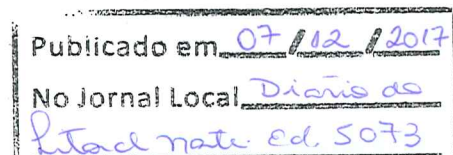 Publicado em 07/12/2017
No Jornal Local Diário do
Litoral Norte Ed. 5073